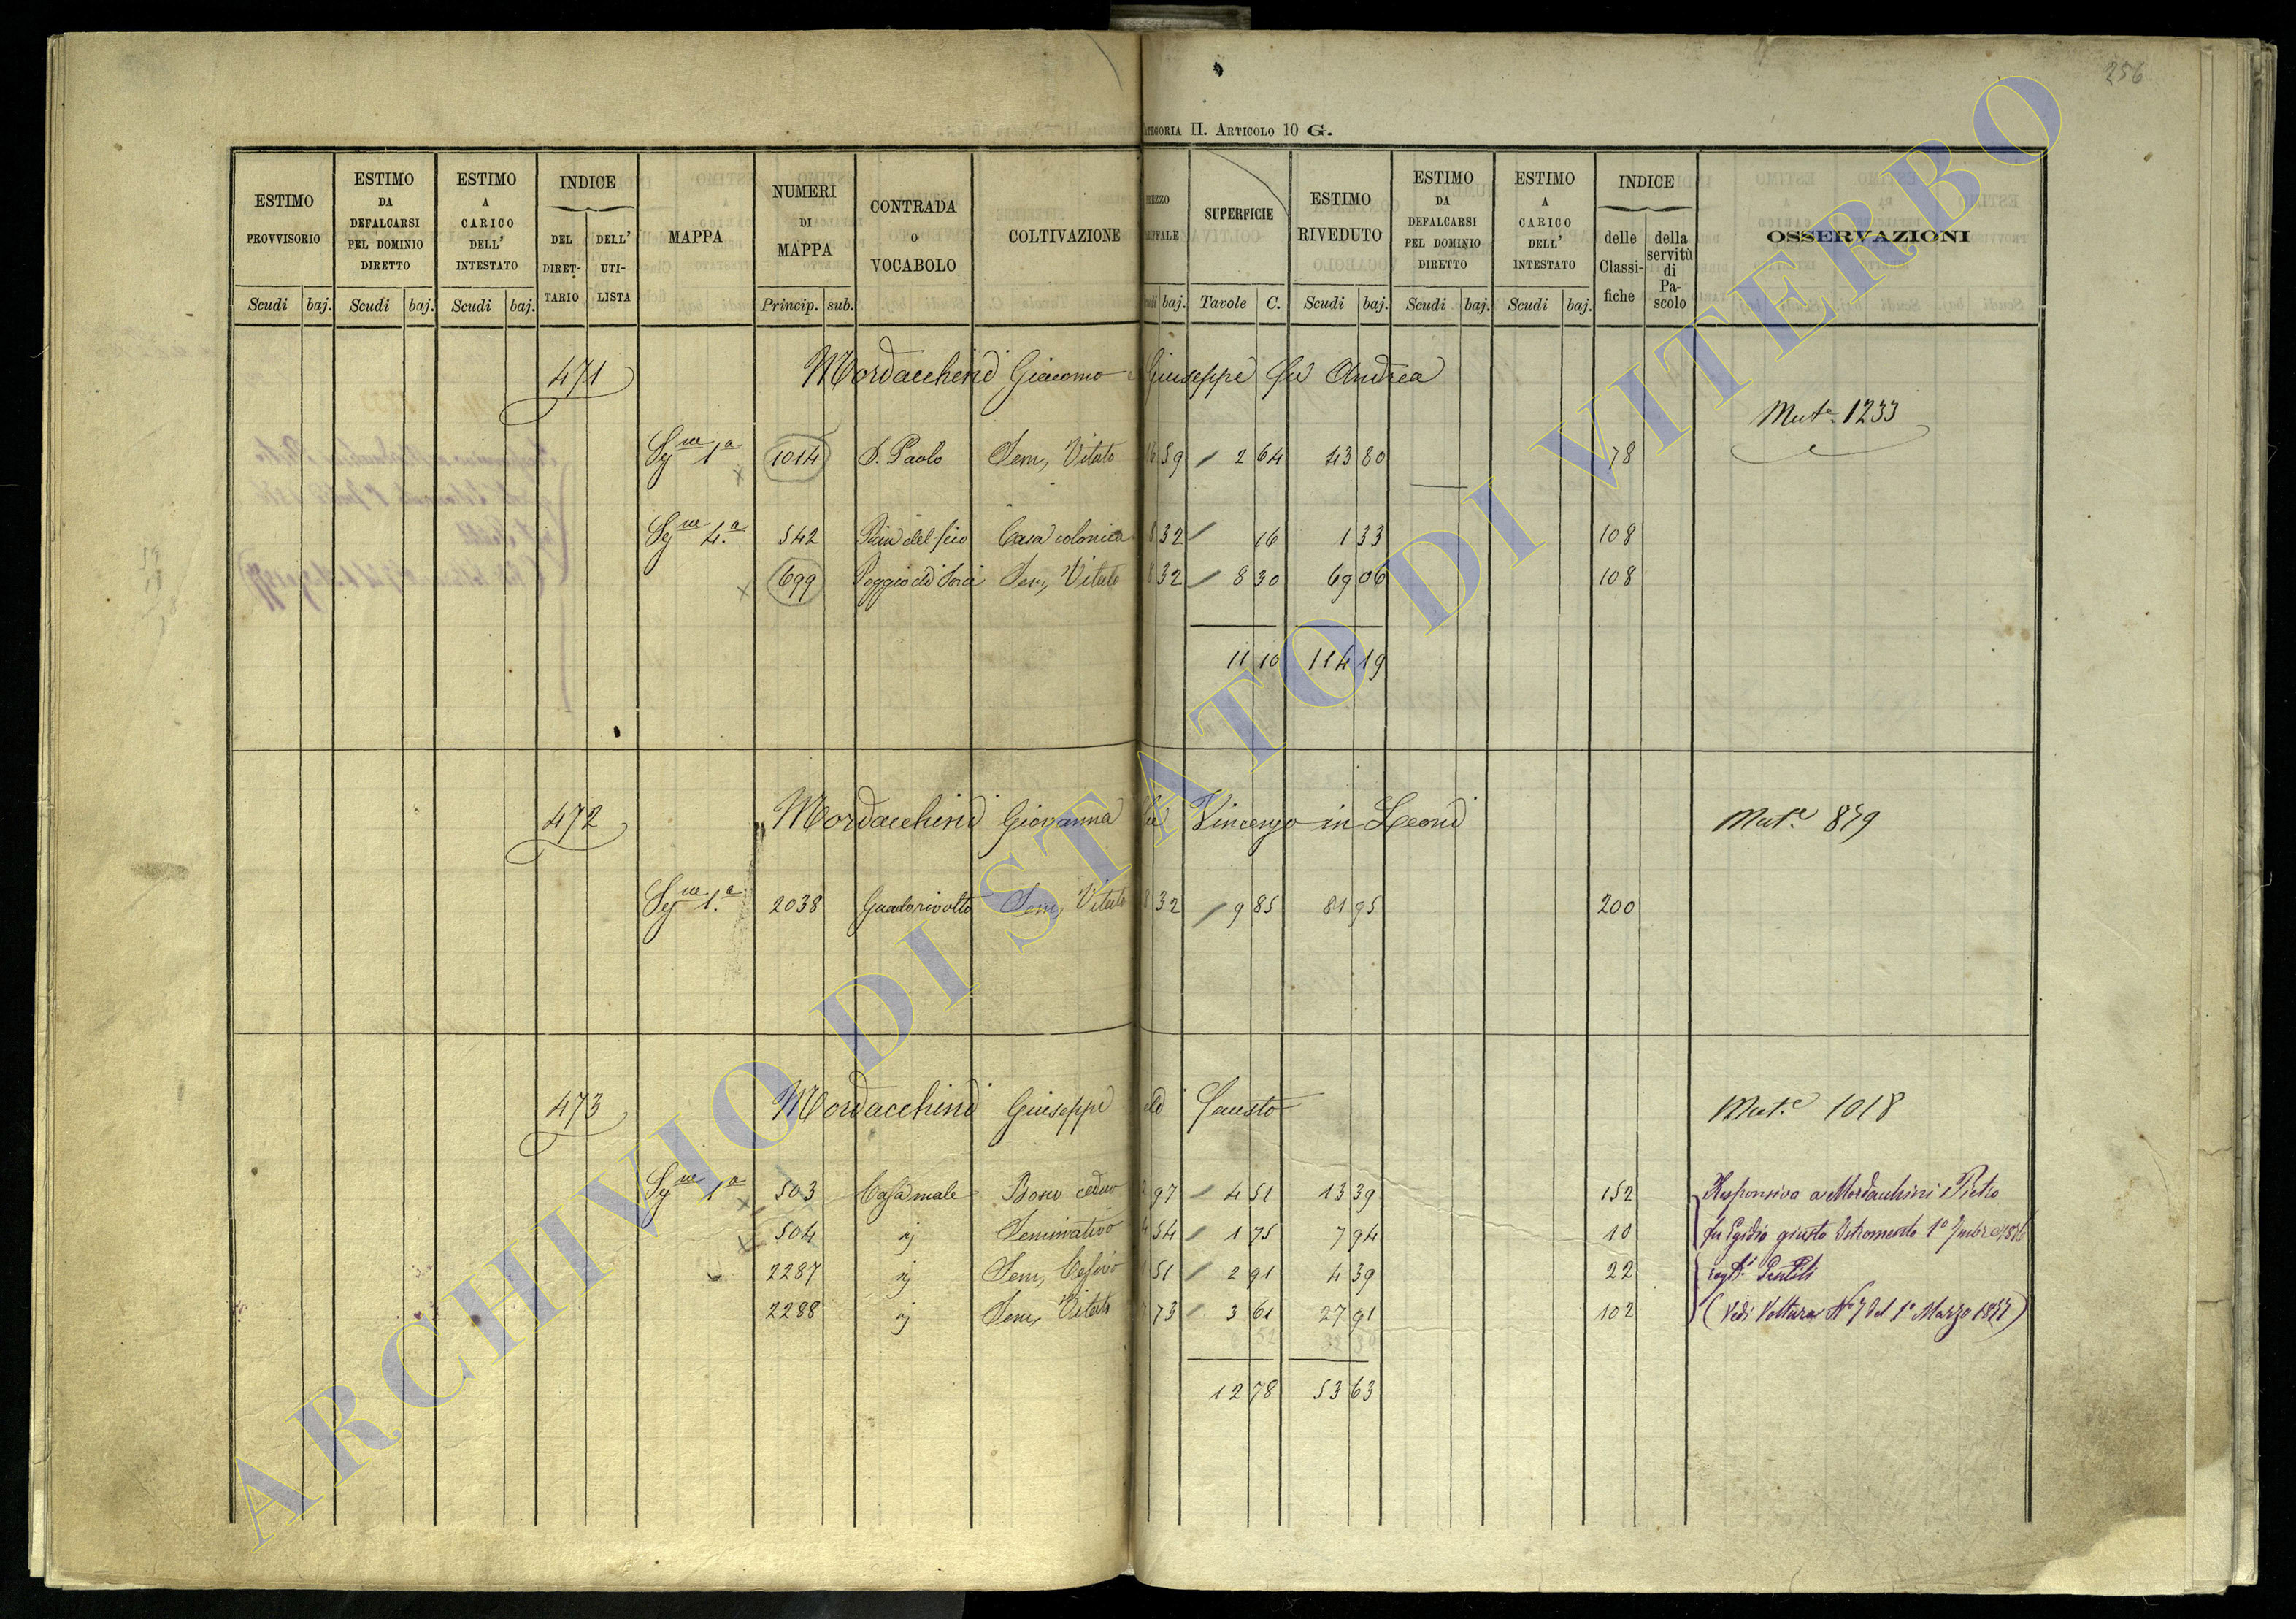 256
ATEGORIA II. ARTICOLO 10 G.
ESTIMO PROVVISORIO
ESTIMO DA DEFALCARSI PEL DOMINIO DIRETTO
ESTIMO A CARICO DELL' INTESTATO
INDICE
DEL DIRET-TARIO
DELL' UTI-LISTA
MAPPA
NUMERI DI MAPPA
CONTRADA O VOCABOLO
COLTIVAZIONE
SUPERFICIE
ESTIMO RIVEDUTO
ESTIMO DA DEFALCARSI PEL DOMINIO DIRETTO
ESTIMO A CARICO DELL' INTESTATO
INDICE
delle Classi-fiche
della servitù di Pa-scolo
OSSERVAZIONI
Scudi baj. Scudi baj. Scudi baj. Princip. sub. baj. Tavole C. Scudi baj. Scudi baj. Scudi baj.
471 Mordacchini Giacomo e Giuseppe fu Andrea
Mut.e 1233
Sz.ne 1a 1014 S. Paolo Sem, Vitato 16 59 2 64 43 80 78
Sz.ne 4.a 542 Pian del fico Casa colonica 8 32 16 1 33 108
699 Poggio di Sorci Sem, Vitato 8 32 8 30 69 06 108
11 10 114 19
472 Mordacchini Giovanna fu Vincenzo in Leoni Mut.e 879
Sz.ne 1.a 2038 Guadorivolto Sem, Vitato 8 32 9 85 81 95 200
473 Mordacchini Giuseppe di Fausto Mut.e 1018
Sz.ne 1a 503 Casamale Bosco ceduo 2 97 4 51 13 39 152 Responsivo a Mordacchini Pietro
504 Seminativo 4 54 1 75 7 94 10 fu Egidio giusto Istromento 1°
2287 Sem, Cesivo 1 51 2 91 4 39 22 Gentili
2288 Sem, Vitato 7 73 3 61 27 91 102 (Vedi Voltura N° 7 del 1° Marzo 1877)
12 78 53 63
ARCHIVIO DI STATO DI VITERBO